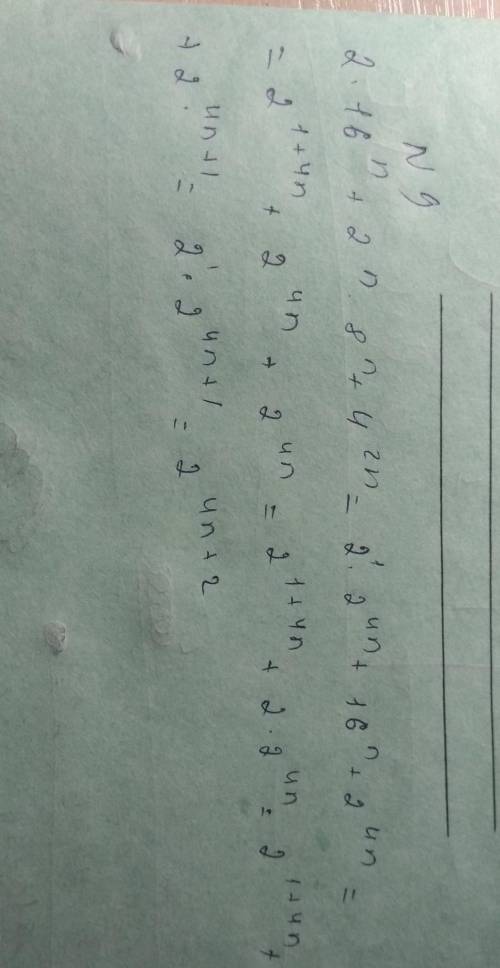 N 9
2·16ⁿ + 2ⁿ·8ⁿ + 4²ⁿ = 2¹·2⁴ⁿ + 16ⁿ + 2⁴ⁿ =
= 2¹⁺⁴ⁿ + 2⁴ⁿ + 2⁴ⁿ = 2¹⁺⁴ⁿ + 2·2⁴ⁿ = 2¹⁺⁴ⁿ +
+ 2⁴ⁿ⁺¹ = 2¹·2⁴ⁿ⁺¹ = 2⁴ⁿ⁺²